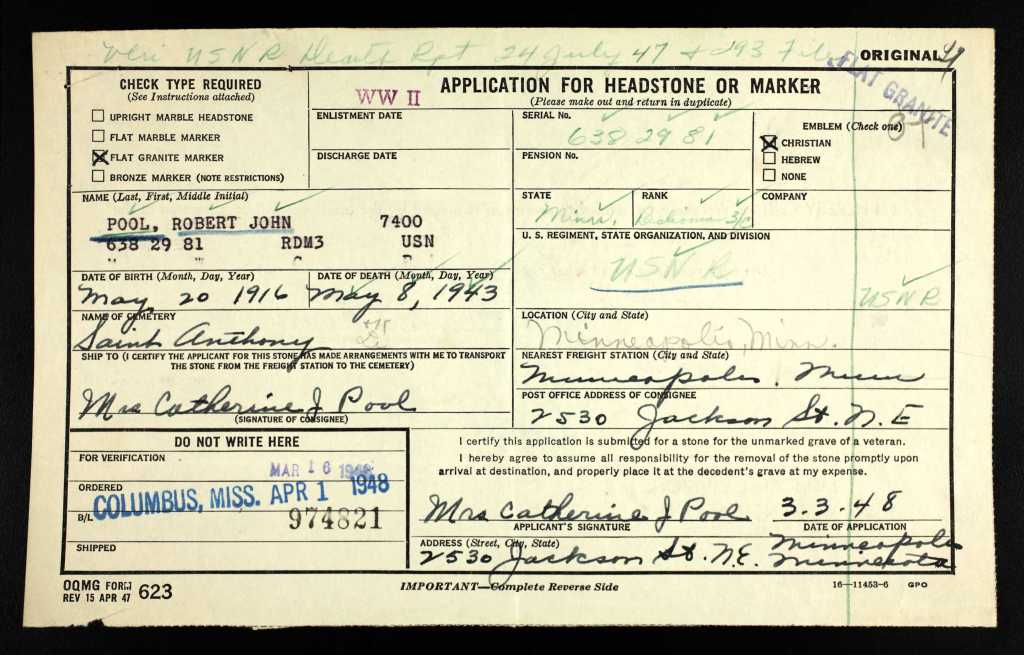 Veri USNR Death Rpt 24 July 47 + 293 File
ORIGINAL
FLAT GRANITE
CHECK TYPE REQUIRED
(See Instructions attached)
UPRIGHT MARBLE HEADSTONE
FLAT MARBLE MARKER
FLAT GRANITE MARKER
BRONZE MARKER (NOTE RESTRICTIONS)
WW II
APPLICATION FOR HEADSTONE OR MARKER
(Please make out and return in duplicate)
ENLISTMENT DATE
SERIAL No.
638 29 81
EMBLEM (Check one)
CHRISTIAN
HEBREW
NONE
DISCHARGE DATE
PENSION No.
NAME (Last, First, Middle Initial)
POOL, ROBERT JOHN 7400
638 29 81 RDM3 USN
STATE
Minn.
RANK
Radioman 3/c
COMPANY
U. S. REGIMENT, STATE ORGANIZATION, AND DIVISION
USNR
USNR
DATE OF BIRTH (Month, Day, Year)
May 20 1916
DATE OF DEATH (Month, Day, Year)
May 8, 1943
NAME OF CEMETERY
Saint Anthony
LOCATION (City and State)
Minneapolis, Minn.
SHIP TO (I CERTIFY THE APPLICANT FOR THIS STONE HAS MADE ARRANGEMENTS WITH ME TO TRANSPORT
THE STONE FROM THE FREIGHT STATION TO THE CEMETERY)
Mrs Catherine J Pool
(SIGNATURE OF CONSIGNEE)
NEAREST FREIGHT STATION (City and State)
Minneapolis. Minn
POST OFFICE ADDRESS OF CONSIGNEE
2530 Jackson St. N. E
DO NOT WRITE HERE
FOR VERIFICATION
MAR 16 1948
ORDERED
COLUMBUS, MISS. APR 1 1948
B/L
974821
SHIPPED
I certify this application is submitted for a stone for the unmarked grave of a veteran.
I hereby agree to assume all responsibility for the removal of the stone promptly upon
arrival at destination, and properly place it at the decedent's grave at my expense.
Mrs Catherine J Pool 3.3.48
APPLICANT'S SIGNATURE DATE OF APPLICATION
ADDRESS (Street, City, State)
2530 Jackson St. N.E. Minneapolis
Minnesota
OQMG FORM
REV 15 APR 47 623
IMPORTANT—Complete Reverse Side
16—11453-6 GPO